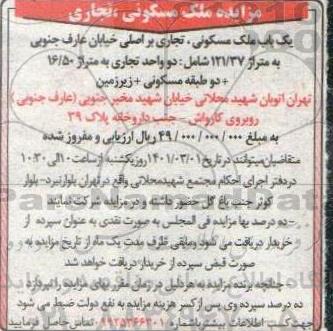 مزایده ملک مسکونی ،تجاری
یک باب ملک مسکونی . تجاری بر اصلی خیابان عارف جنوبی
به متراژ ۱۲۱/۳۷ شامل : دو واحد تجاری به متراژ ۱۶/۵۰
+ دو طبقه مسکونی + زیرزمین
تهران اتوبان شهید محلاتی خیابان شهید مخبر جنوبی (عارف جنوبی )
روبروی کارواش - جنب داروخانه پلاک ۳۹
به مبلغ ۴۹/۰۰۰/۰۰۰/۰۰۰ ریال ارزیابی و مفروز شده
متقاضیان میتوانند در تاریخ ۱۴۰۱/۰۳/۰۱ روز یکشنبه از ساعت ۱۰ الی ۱۰:۳۰
در دفتر اجرای احکام مجتمع شهید محلاتی واقع در تهران بلوار نبرد - بلوار
کوثر جنب باغ گل حضور داشته و در مزایده شرکت نمایند
-ده درصد بها مزایده فی المجلس به صورت نقدی به عنوان سپرده از
خریدار دریافت می شود ومابقی ظرف مدت یک ماه از تاریخ مزایده به و
صورت قبض سپرده از خریدار دریافت خواهد شد
چنانچه برنده مزایده به هر دلیل در زمان مقرر بهای مزایده را نپردازد
ده درصد سپرده وی پس از کسر هزینه مزایده به نفع دولت ضبط می شود
جهت کسب اطلاعات بیشتر با شماره ۰۹۹۲۵۳۶۶۳۰۱ تماس حاصل فرمایید